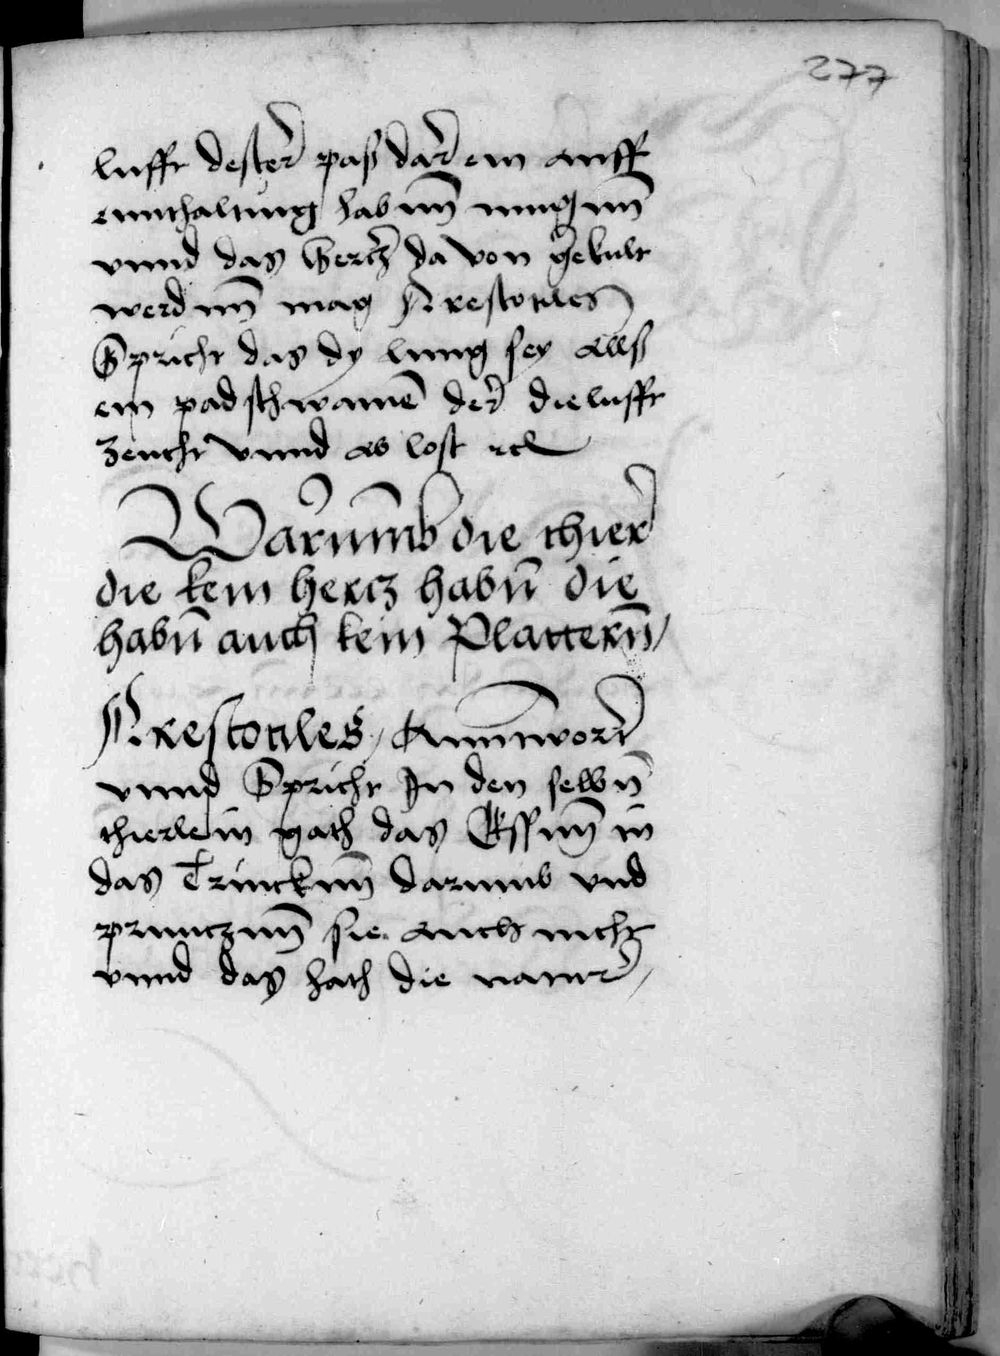 277
lufft dester paß dar ein auff
ennthaltung hab nn̄ mug nn̄
vnnd das Hertz da von gekult
werd nn̄ mag Arestotiles
Spricht das dy lung sey alls
ein pad schwamē der die lufft
zeucht vnnd ab lost etc
Warumb die thier
die kein hertz habn̄ die
habn̄ auch kein Plattern̄/
Arestotiles / Anntwort
vnnd Spricht Jn den selbn̄
thierlein gath das Essnn̄ in
das Trincknn̄ darumb vnd
prunztnn̄ sie auch nicht
vnnd das hath die natur /